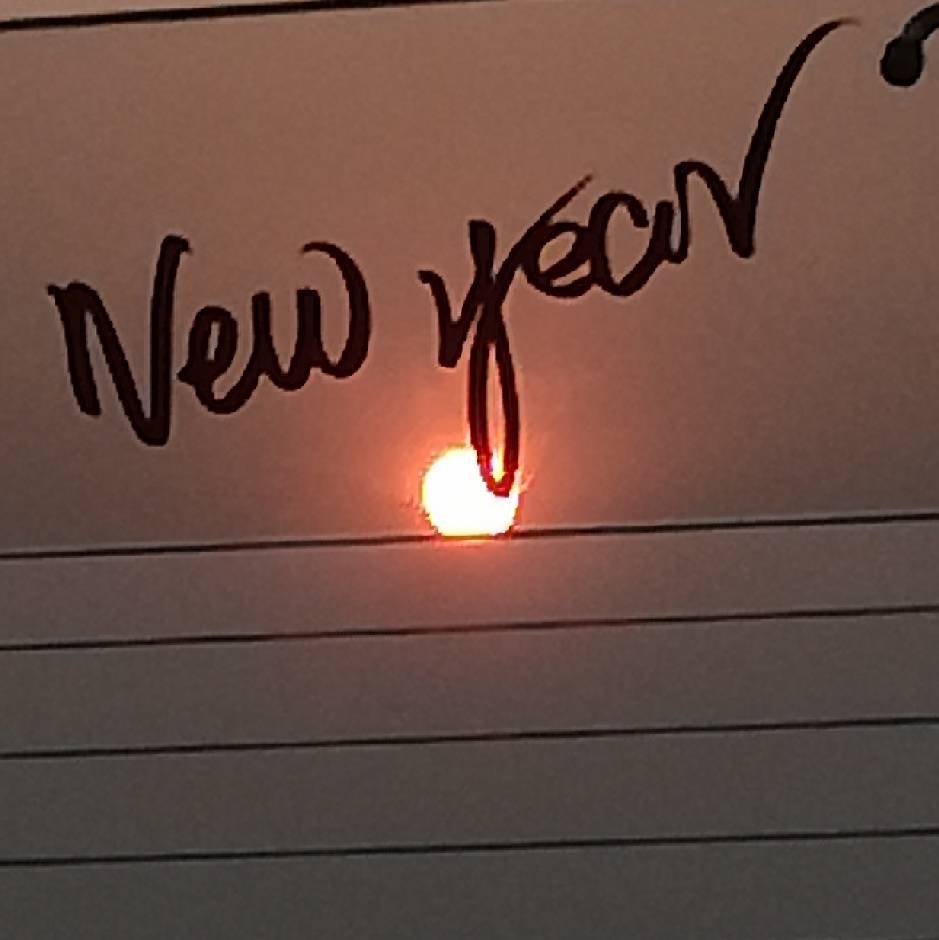 New year